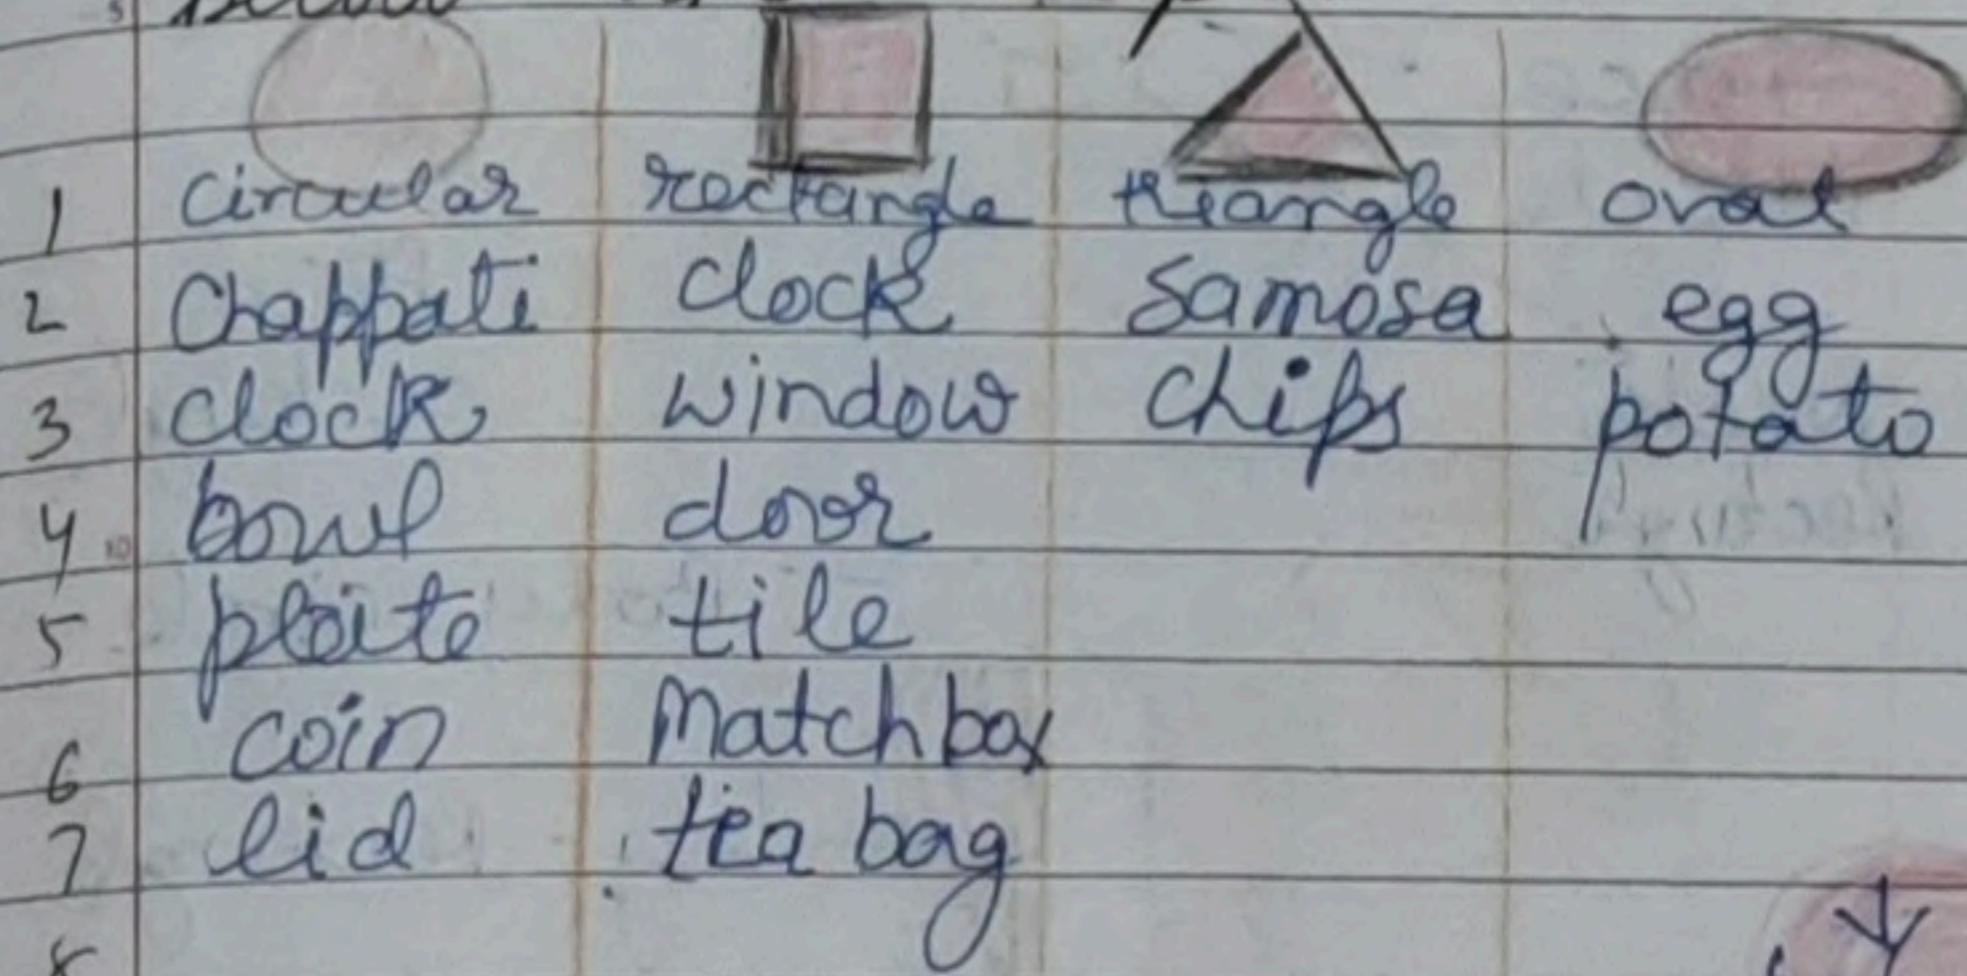 1 Circular rectangle triangle oval
2 Chappati clock Samosa egg
3 clock window chips potato
4 bowl door
5 plate tile
6 coin Matchbox
7 lid tea bag
8